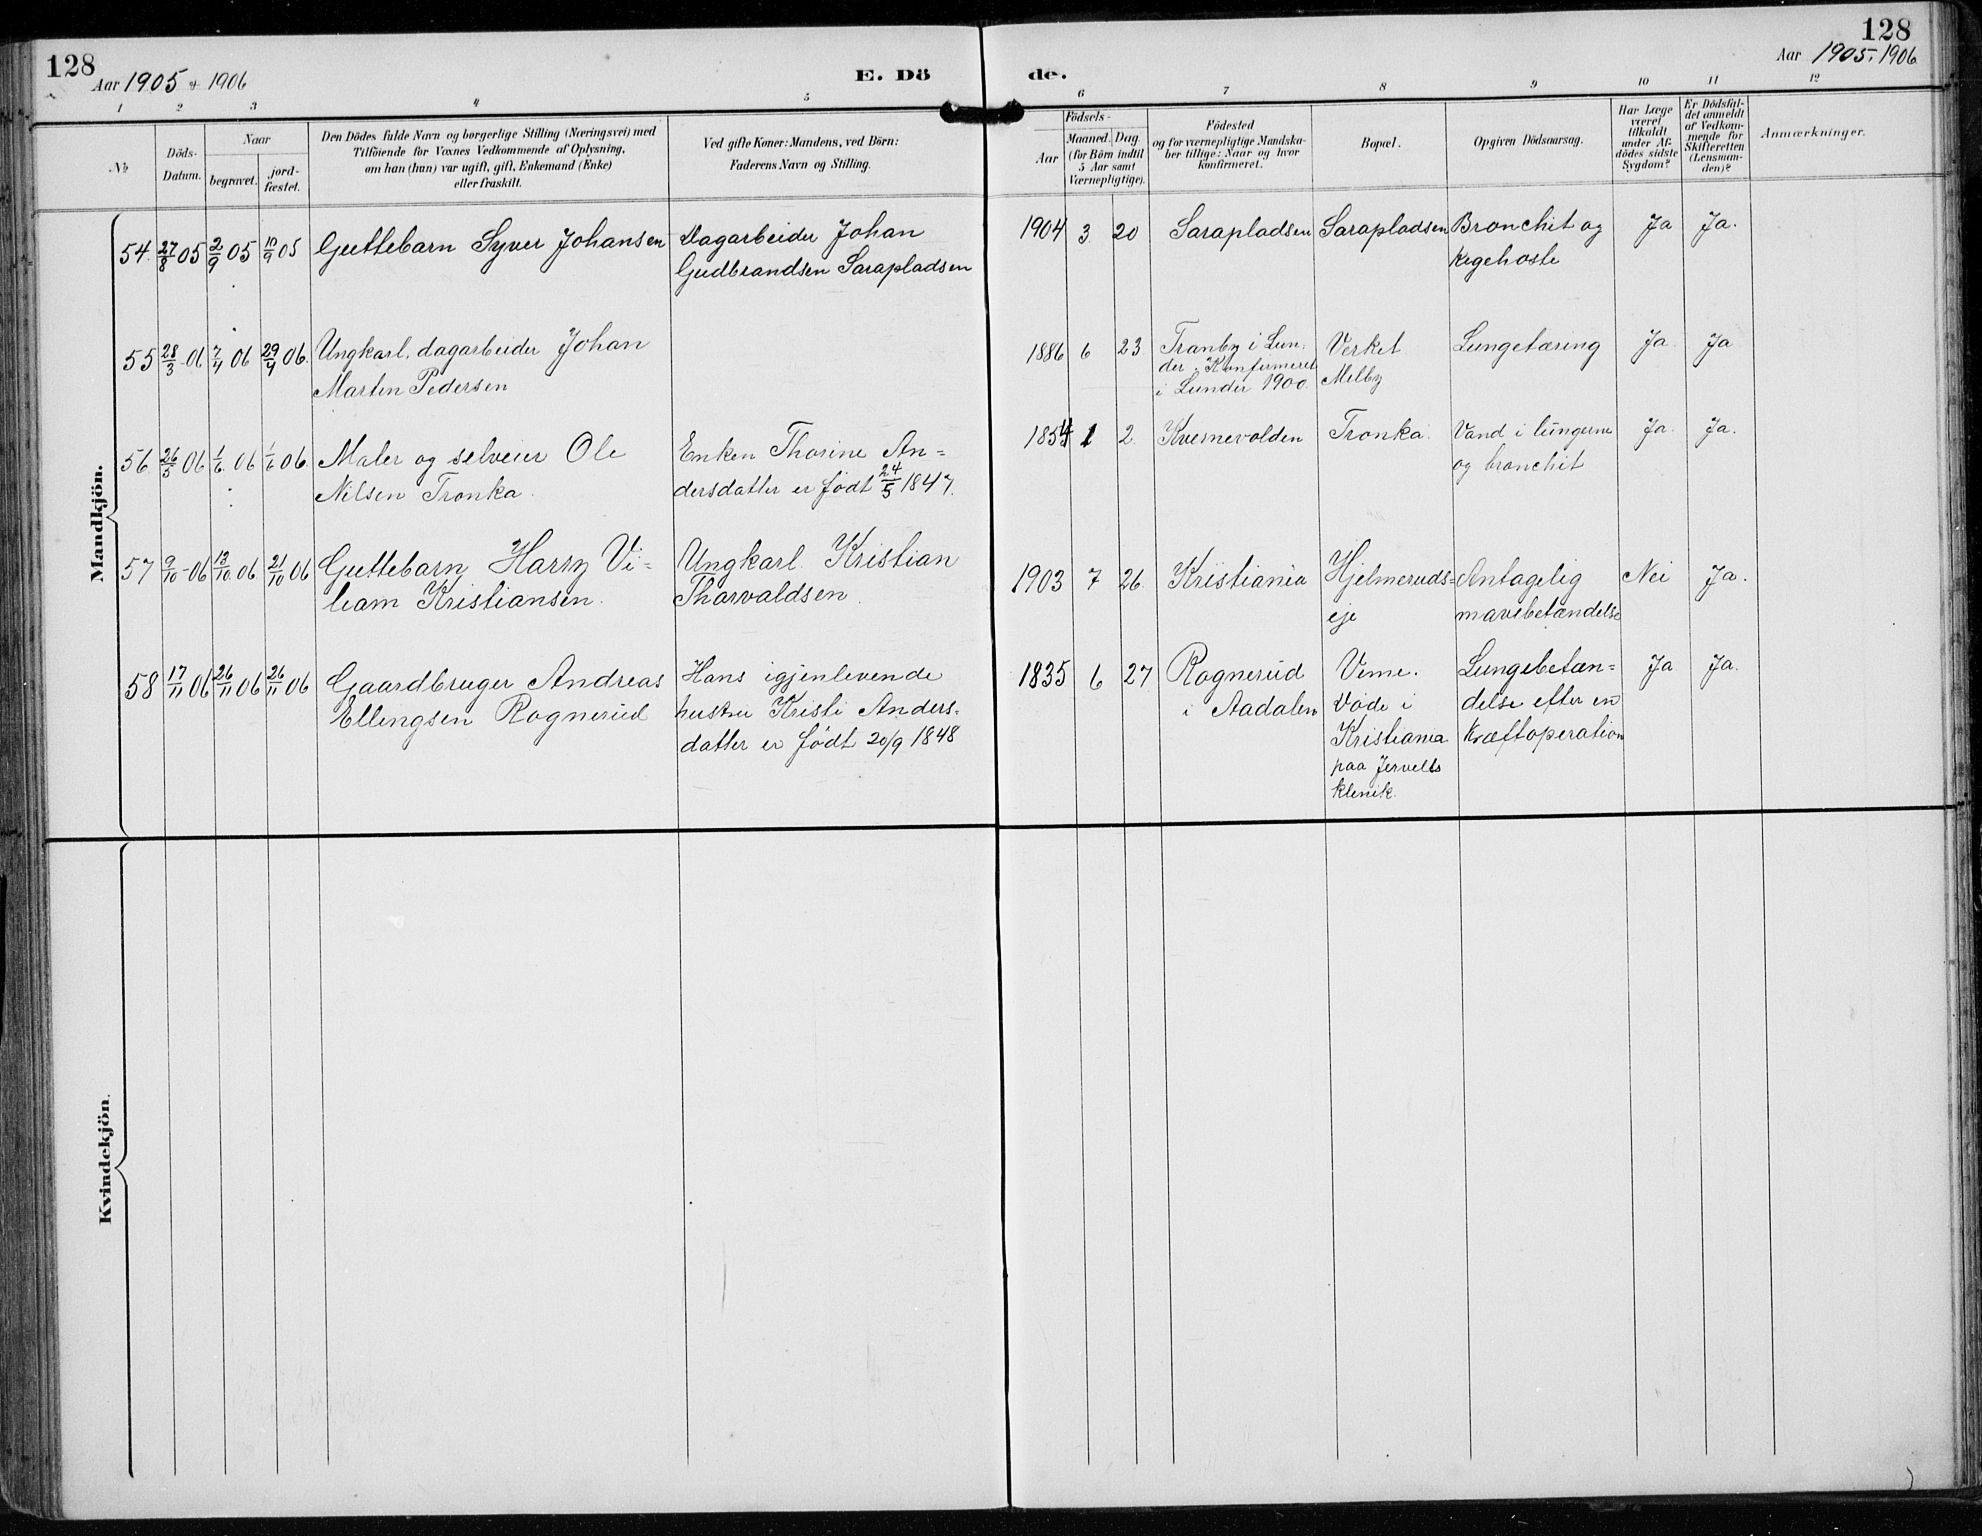 128
Aar 1905 & 1906
E. Dö
de.
128
Aar 1905. 1906
1 2 3 4 5 6 7 8 9 10 11 12
No
Döds-
Datum.
Naar
begravet.
jord-
fæstet.
Den Dödes fulde Navn og borgerlige Stilling (Næringsvei) med
Tilföiende for Voxnes Vedkommende af Oplysning,
om han (hun) var ugift, gift, Enkemand (Enke)
eller fraskilt.
Ved gifte Koner: Mandens, ved Börn:
Faderens Navn og Stilling.
Födsels-
Aar
Maaned. Dag.
(for Börn indtil
5 Aar samt
Værnepligtige).
Födested
og for værnepligtige Mandska-
ber tillige: Naar og hvor
konfirmeret.
Bopæl.
Opgiven Dödsaarsag.
Har Læge
været
tilkaldt
under Af-
dödes sidste
Sygdom?
Er Dödsfal-
det anmeldt
af Vedkom-
mende for
Skifteretten
(Lensman-
den)?
Anmærkninger.
Mandkjön.
54. 27/8 05 2/9 05 10/9 05 Guttebarn Syver Johansen Dagarbeider Johan 1904 3 20 Sarapladsen Sarapladsen Bronchit og Ja Ja.
Gudbrandsen Sarapladsen kigehoste
55 28/3-06 7/4 06 29/4 06. Ungkarl, dagarbeider Johan 1886 6 23 Tranby i Lun- Verket Lungetæring Ja Ja
Martin Pedersen der. Konfirmeret Melby
i Lunder 1900.
56 26/5 06 1/6 06 1/6 06. Maler og selveier Ole Enken Thorine An= 1854 1 2. Kvernevolden Tronka. Vand i lungerne Ja. Ja.
Nilsen Tronka. dersdatter er født 24/5 1847. og bronchit
57 9/10-06 13/10 06. 21/10 06 Guttebarn Harry Vi= Ungkarl. Kristian 1903 7 26 Kristiania Hjelmeruds= Antagelig Nei Ja.
liam Kristiansen. Thorvaldsen. eje mavebetændelse
58 17/11 06 26/11 06 26/11 06 Gaardbruger Andreas Hans igjenlevende 1835 6 27 Rognerud Veme. Lungebetæn= Ja Ja.
Ellingsen Rognerud hustru Kristi Anders- i Aadalen Døde i delse efter en
datter er født 20/9 1848 Kristiania kræftoperation
paa Jervells
klinik.
Kvindekjön.